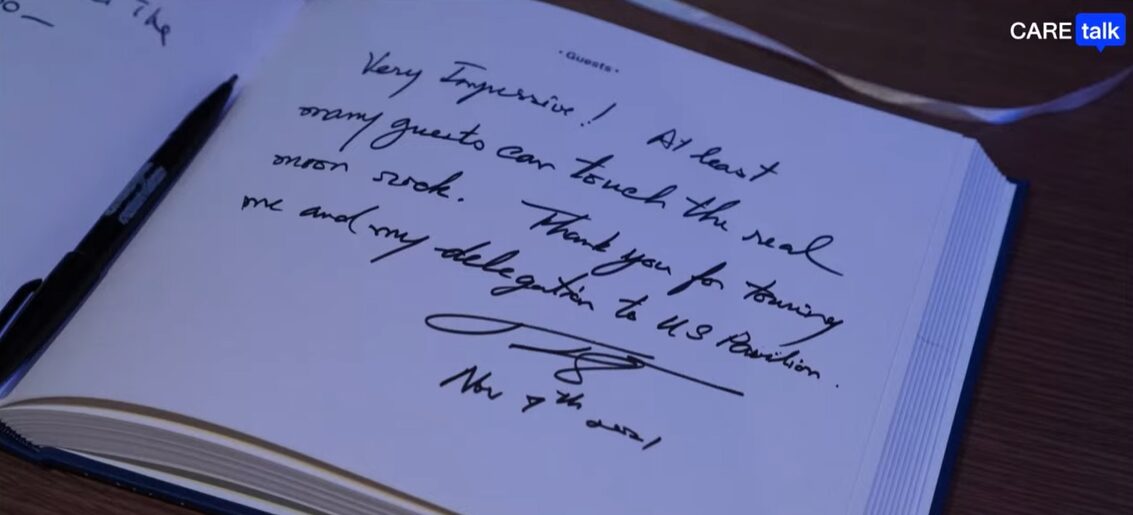 The
CARE talk
·Guests·
Very Impressive! At least
many guests can touch the real
moon rock. Thank you for touring
me and my delegation to US Pavilion.
Nov 7th 2021